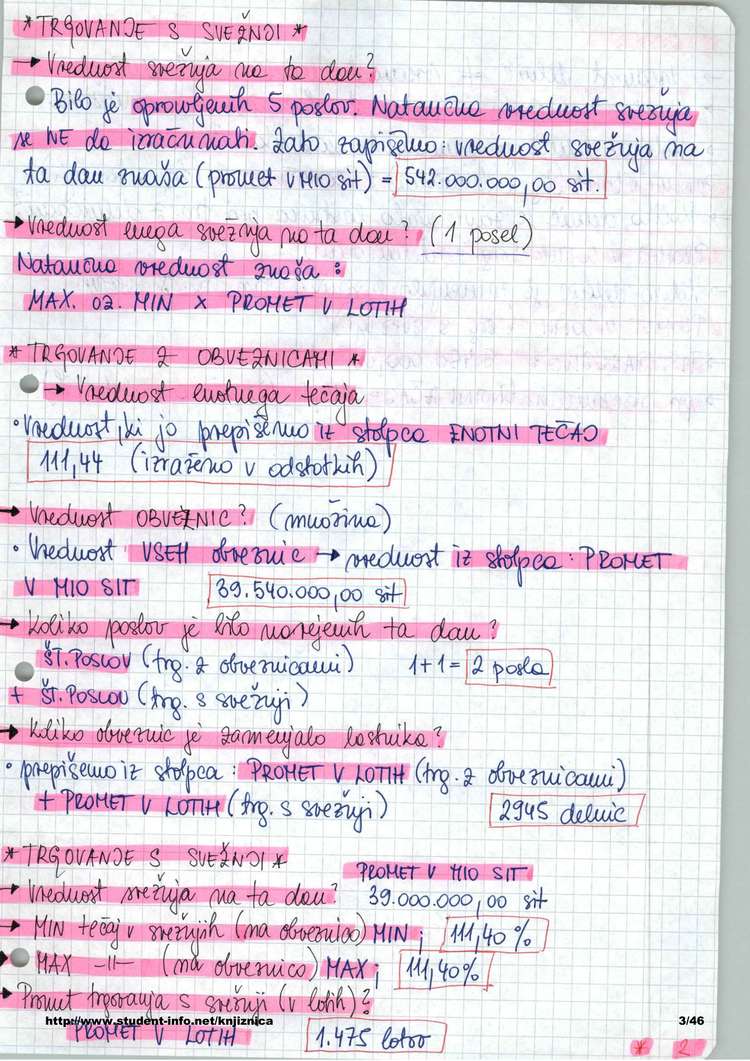 * TRGOVANJE S SVEŽNJI *
→ Vrednost svežnja na ta dan?
Bilo je opravljenih 5 poslov. Natančna vrednost svežnja
se NE da izračunati. Zato zapišemo: vrednost svežnja na
ta dan znaša (promet v MIO sit) = 542.000.000,00 sit.
→ Vrednost enega svežnja na ta dan? (1 posel)
Natančna vrednost znaša :
MAX. oz. MIN X PROMET V LOTIH
* TRGOVANJE Z OBVEZNICAMI *
→ Vrednost enotnega tečaja
• Vrednost, ki jo prepišemo iz stolpca ENOTNI TEČAJ
111,44 (izraženo v odstotkih)
→ Vrednost OBVEZNIC? (množina)
• Vrednost VSEH obveznic → vrednost iz stolpca : PROMET
V MIO SIT 39.540.000,00 sit
→ Koliko poslov je bilo narejenih ta dan?
ŠT. POSLOV (trg. z obveznicami) 1+1= 2 posla
+ ŠT. POSLOV (trg. s svežnji)
→ Koliko obveznic je zamenjalo lastnika?
• prepišemo iz stolpca : PROMET V LOTIH (trg. z obveznicami)
+ PROMET V LOTIH (trg. s svežnji) 2945 delnic
* TRGOVANJE S SVEŽNJI *
PROMET V MIO SIT
→ Vrednost svežnja na ta dan? 39.000.000,00 sit
→ MIN tečaj v svežnjih (na obveznico) MIN ; 111,40 %
→ MAX -11- (na obveznico) MAX ; 111,40%
→ Promet trgovanja s svežnji (v lotih)?
http://www.student-info.net/knjiznica 3/46
PROMET V LOTIH 1.475 lotov
* 2